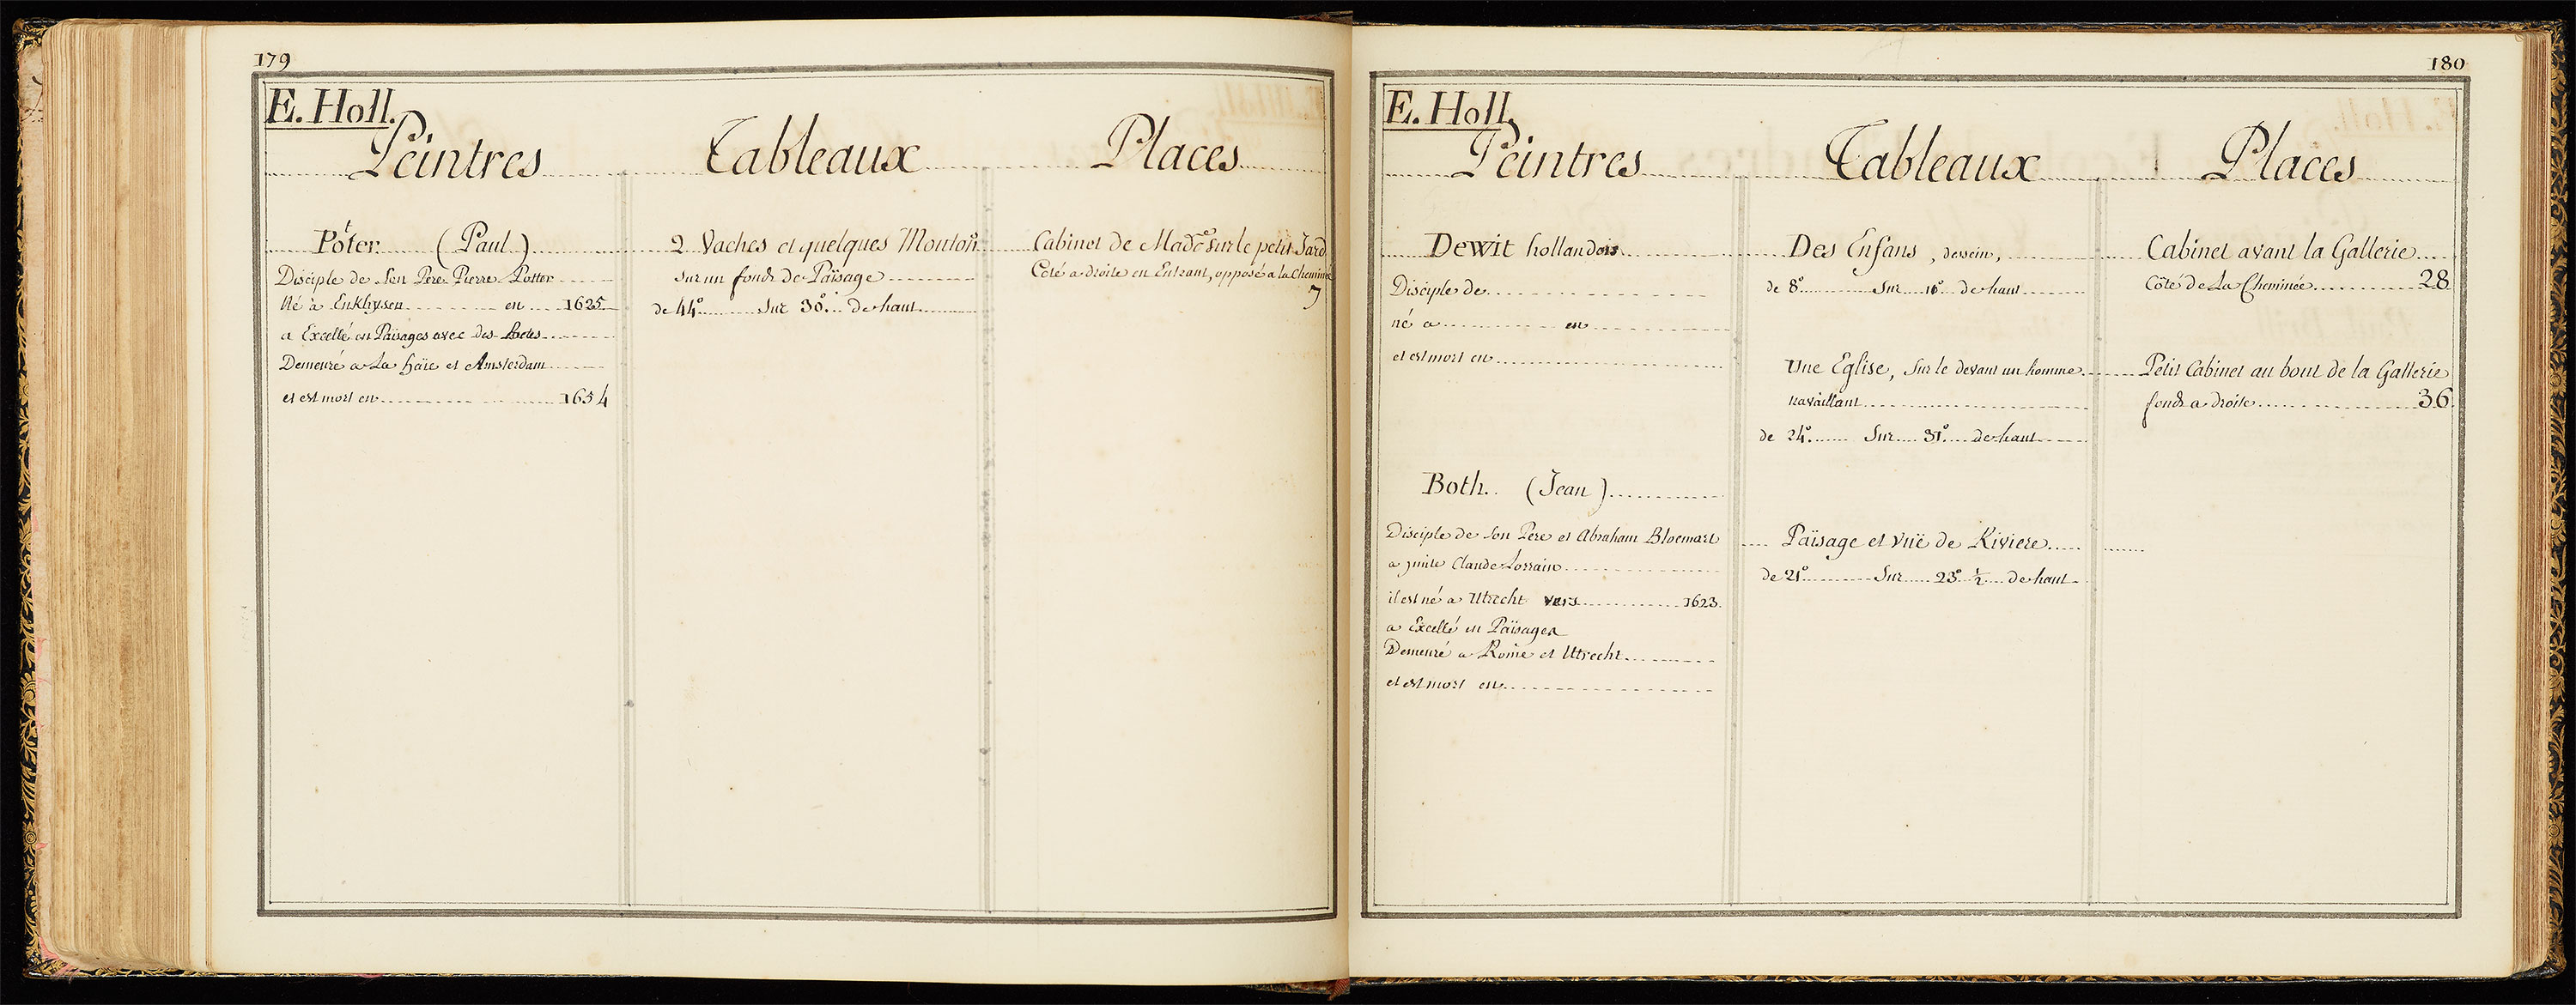 179
E. Holl.
Peintres Tableaux Places
Potter. (Paul) 2 Vaches et quelques Moutons Cabinet de Made. sur le petit Jard.
Disciple de Son Pere Pierre Potter sur un fonds de Païsage Coté a droite en Entrant, opposé a la Cheminée
Né à Enkhysen en 1625 de 44° Sur 30° de haut 7
a Excellé en Païsages avec des
Demeuré a La haïe et Amsterdam
et est mort en 1654
180
E. Holl.
Peintres Tableaux Places
Dewit hollandois Des Enfans, dessein, Cabinet avant la Gallerie
Disciple de de 8° Sur de haut Côté de La Cheminée 28
né a en
et est mort en Une Eglise, Sur le devant un homme Petit Cabinet au bout de la Gallerie
travaillant fonds a droite 36
de 24° Sur 31° de haut
Both. (Jean)
Disciple de Son Pere et Abraham Bloemart Païsage et vuë de Riviere
a imité Claude Lorrain de 21° Sur 23° ½ de haut
il est né a Utrecht vers 1623
a Excellé en Païsages
Demeuré a Rome et Utrecht
et est mort en